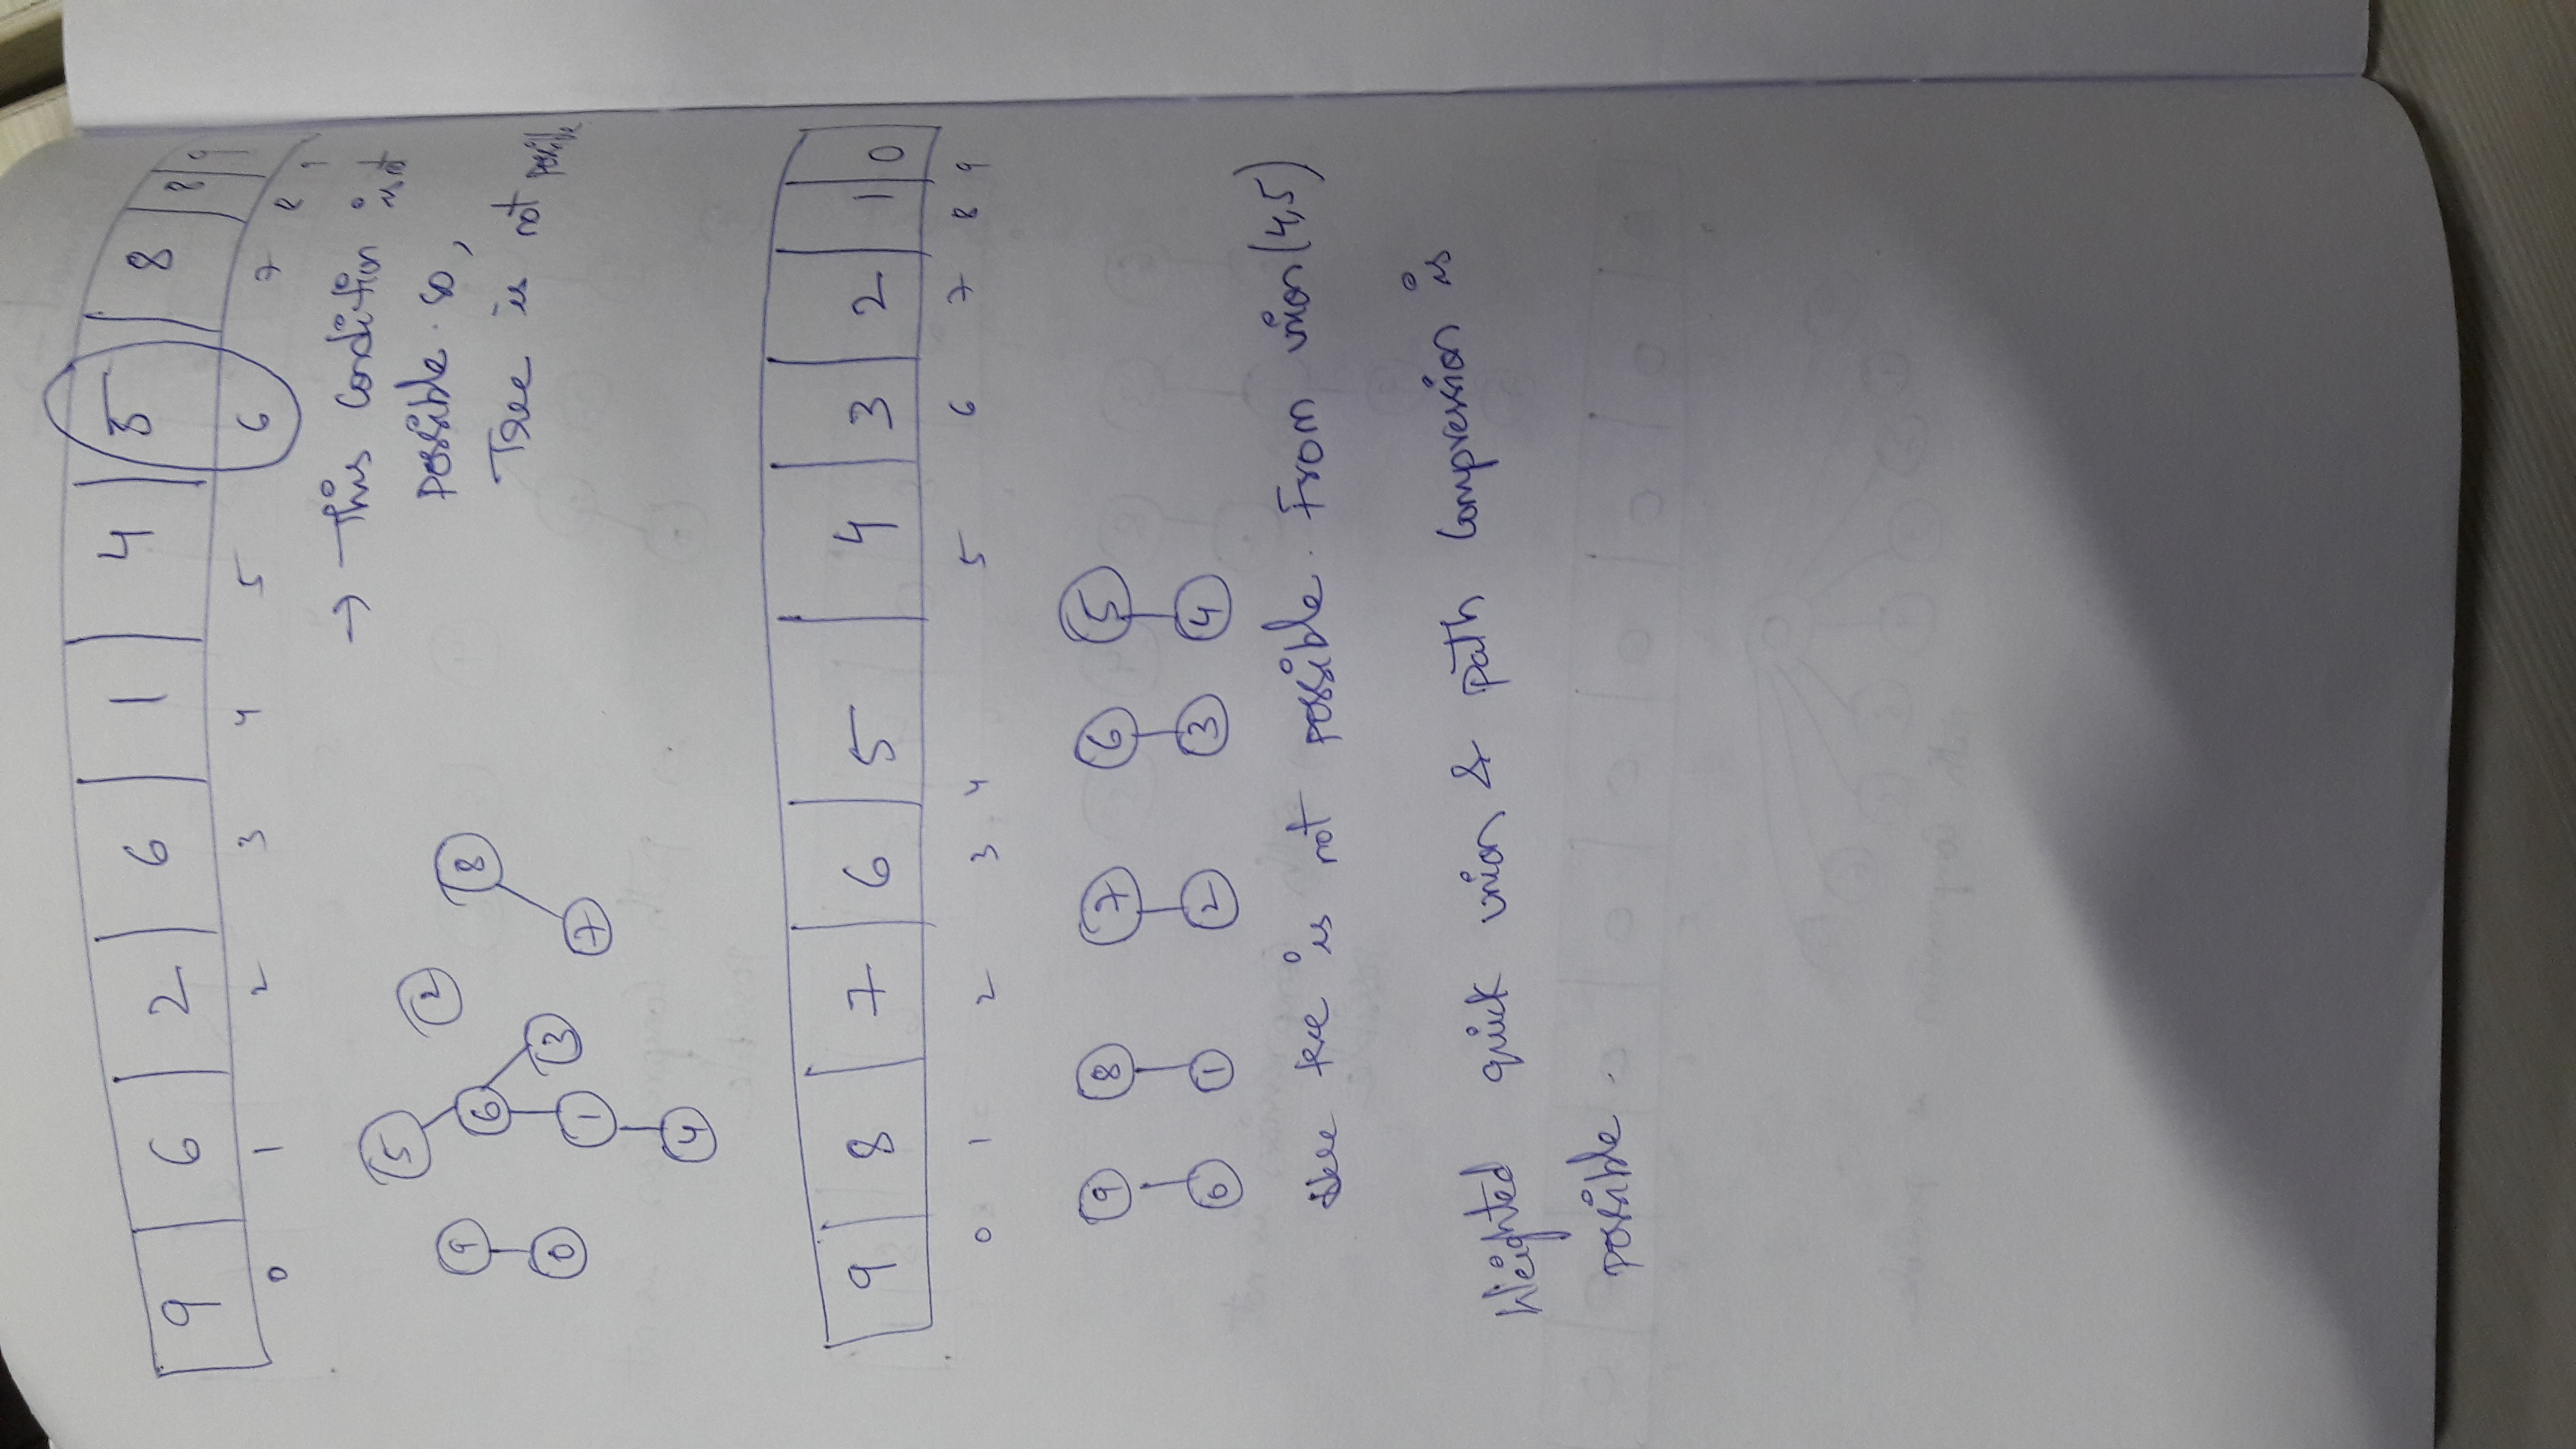 9 6 2 6 1 4 5 8 8 9
0 1 2 3 4 5 6 7 8 9
→ This Condition is not
possible. so,
Tree is not possible
5
2
9 6 8
0 1 3 7
4
9 8 7 6 5 4 3 2 1 0
0 1 2 3 4 5 6 7 8 9
9 8 7 6 5
0 1 2 3 4
tree is not possible. From union(4,5)
Weighted quick union & path Compression is
possible.